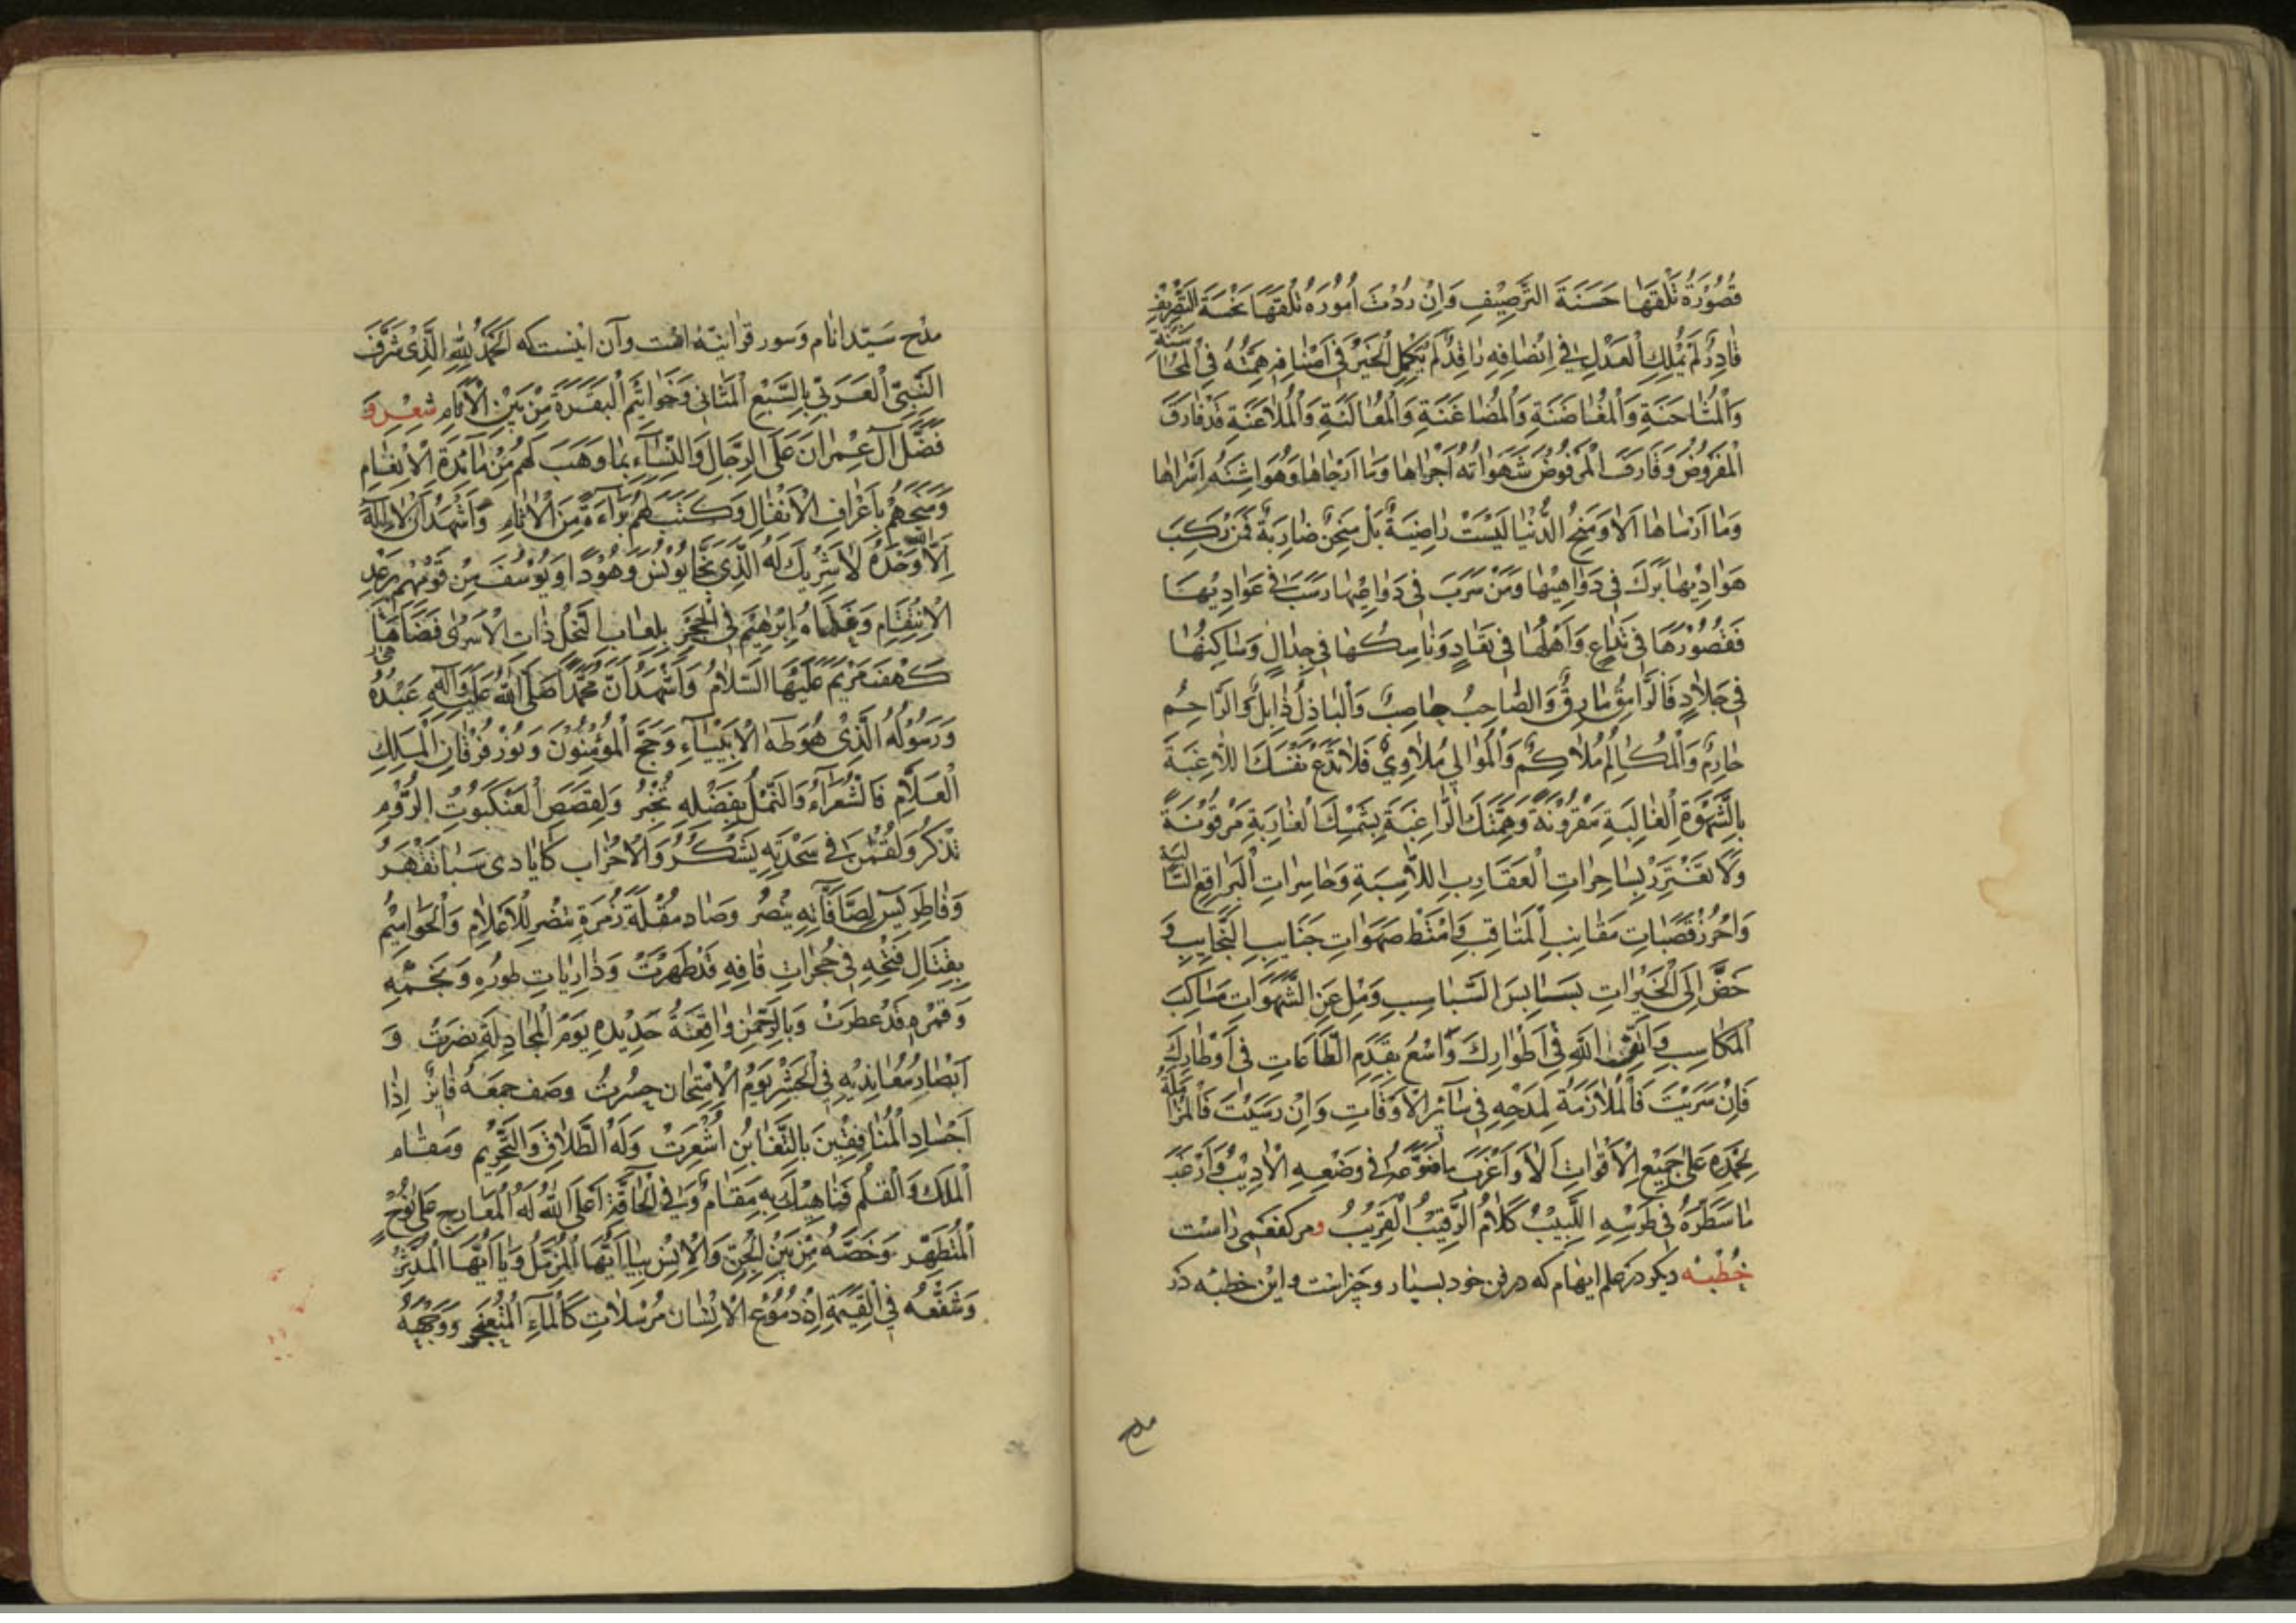 قُصُوْرَهُ تُلْقَهَا حَسَنَةَ التَّرْصِيْفِ وَاِنْ رُدْتَ اُمُوْرَهُ تُلْقَهَا
قَادِرٌ لَمْ يَمْلِكِ الْعَدْلَ فِي اِنْصَافِهِ رَاقِدٌ لَمْ يَكْمُلِ الْخَيْرُ فِي هِمَّتُهُ فِي
وَالْمُشَاحَنَةِ وَالْمُضَاغَنَةِ وَالْمُلَاعَنَةِ قَدْ فَارَقَ
الْمَفْرُوْضَ وَقَارَفَ الْمَرْفُوْضَ شَهَوَاتُهُ اَجْرَاهَا وَمَا اَرْجَاهَا وَهَفَوَاتُهُ اَسْرَاهَا
وَمَا اَرْسَاهَا اَلَا وَمِنَحُ الدُّنْيَا لَيْسَتْ رَاضِيَةً بَلْ مِحَنٌ ضَارِبَةٌ فَمَنْ رَكِبَ
هَوَادِيْهَا بَرَكَ فِي دَوَاهِيْهَا وَمَنْ سَرَبَ فِي رَسَبَ فِي عَوَادِيْهَا
فَقُصُوْرُهَا فِي تَدَاعٍ وَاَهْلُهَا فِي وَنَاسِكُهَا فِي جِدَالٍ وَسَاكِنُهَا
فِي جِلَادٍ فَالرَّامِقُ مَارِقٌ وَالصَّاحِبُ حَاصِبٌ وَالْبَاذِلُ ذَابِلٌ وَالرَّاحِمُ
حَارِمٌ وَالْمُكَالِمُ مُلَاكِمٌ وَالْمُوَالِي مُلَاوِيْ فَلَا تَدَعْ نَفْسَكَ اللَّاغِبَةَ
بِالشَّهْوَةِ الْغَالِبَةِ مَقْرُوْنَةً وَهِمَّتَكَ الرَّاغِبَةَ
وَلَا تَغْتَرِرْ بِسَاحِرَاتِ الْعَقَارِبِ اللَّاسِبَةِ وَحَاسِرَاتِ الْبَرَاقِعِ السَّالِبَةِ
وَاحْرُزْ قَصَبَاتِ مَقَانِبِ الْمَنَاقِبِ وَامْتَطِ صَهَوَاتِ جَنَايِبِ النَّجَايِبِ وَ
حُضَّ اِلَى الْخَيْرَاتِ بَسَابِسَ السَّبَاسِبِ وَمِلْ عَنِ الشَّهَوَاتِ مَنَاكِبَ
الْمَكَاسِبِ وَاتَّقِ اللهَ فِي اَطْوَارِكَ وَاسْعَ بِقَدَمِ الطَّاعَاتِ فِي اَوْطَارِكَ
فَاِنْ سَرَيْتَ فَالْمُلَازَمَةُ لِمَدْحِهِ فِي سَائِرِ الْاَوْقَاتِ وَاِنْ رَسَيْتَ
بِحَمْدِهِ عَلَى جَمِيْعِ الْاَقْوَاتِ اَلَا وَاَعْرَبَ مَا ضَوَّعَهُ فِي وَضْعِهِ الْاَدِيْبُ وَاَرْعَبَ
مَا سَطَّرَهُ فِي طِرْسِهِ اللَّبِيْبُ كَلَامُ الرَّقِيْبِ الْقَرِيْبُ و مر كفعمى راست
خُطْبَه ديكر در علم ايهام كه در فن خود بسيار وجيز است و اين خطبه در
مدح
مدح سَيّد انام وَسور قرآنيّه است وآن اينست كه اَلْحَمْدُ لِلّٰهِ الَّذِىْ شَرَّفَ
النَّبِيَّ الْعَرَبِيَّ بِالسَّبْعِ الْمَثَانِي وَخَوَاتِيْمِ الْبَقَرَةِ مِنْ بَيْنِ الْاَنَامِ شعر وَ
فَضَّلَ آلَ عِمْرَانَ عَلَى الرِّجَالِ وَالنِّسَاۤءِ بِمَا وَهَبَ لَهُمْ مِنْ مَائِدَةِ الْاَنْعَامِ
وَمَنَحَهُمْ بِاَعْرَافِ الْاَنْفَالِ وَكَتَبَ لَهُمْ بَرَاۤءَةً مِنَ الْاٰثَامِ وَاَشْهَدُ اَنْ لَا اِلٰهَ
اِلَّا اللّٰهُ وَحْدَهُ لَا شَرِيْكَ لَهُ الَّذِيْ نَجَّا يُوْنُسَ وَهُوْدًا وَيُوْسُفَ مِنْ قَوْمِهِمْ بِرَعْدِ
الْاِنْتِقَامِ وَغَذَاهُ اِبْرٰهِيْمَ فِي الْحِجْرِ بِلُعَابِ النَّحْلِ ذَاتِ الْاَسْرٰى فَضَاهَا
كَهْفَ مَرْيَمَ عَلَيْهَا السَّلَامُ وَاَشْهَدُ اَنَّ مُحَمَّدًا صَلَّى اللهُ عَلَيْهِ وَآلِهِ عَبْدُهُ
وَرَسُوْلُهُ الَّذِيْ هُوَ طٰهَ الْاَنْبِيَاۤءِ وَحَجَّ الْمُؤْمِنُوْنَ وَنُوْرُ فُرْقَانِ الْمَلِكِ
الْعَلَّامِ فَالشُّعَرَآءُ وَالنَّمْلُ بِفَضْلِهِ تُخْبِرُ وَلِقَصَصِ الْعَنْكَبُوْتُ الرُّوْمِ
تَذْكُرُ وَلُقْمٰنُ فِي سَجْدَتِهِ يَشْكُرُ وَالْاَحْزَاب كَاَيَادِى سَبَا تَقْهَرُ
وَفَاطِر يٰسٓ لِصَافَّاتِهِ يَنْصُرُ وَصَاد مُقْلَةُ زُمْرَةِ تَنْضُر لِلْاَعْلَامِ وَالْحَوَامِيْمِ
بِقِتَالِ فَتْحِهِ فِي حُجُرَاتِ قَافِهِ قَدْ ظَهَرَتْ وَذَارِيَاتِ طُوْرِهِ وَنَجْمِهِ
وَقَمَرِهِ قَدْ عَطَرَتْ وَبِالرَّحْمٰنِ وَاقِعَةُ حَدِيْدِهِ يَوْمَ الْمُجَادِلَةِ نُصِرَتْ وَ
اَبْصَارُ مُعَانِدِيْهِ فِي الْحَشْرِ يَوْمَ الْاِمْتِحَانِ حَسُرَتْ وَصَف جُمُعَتِهُ فَايزٌ اِذَا
اَجْسَادُ الْمُنَافِقِيْنَ بِالتَّغَابُنِ اُشْعِرَتْ وَلَهُ الطَّلَاقُ وَالتَّحْرِيْم وَمَقَام
الْمُلْك وَالْقَلَم فَنَاهِيْكَ بِهِ مِقَامٌ وَفِي الْحَاقَّةِ اَعْلَى اللّٰهُ لَهُ الْمَعَارِج عَلٰى نُوْحٍ
الْمُتَطَهِّرِ وَخَصَّهُ مِنْ بَيْنِ الْجِنِّ وَالْاِنْسِ بِيَا اَيُّهَا الْمُزَّمِّلُ وَيَا اَيُّهَا الْمُدَّثِّرُ
وَشَفَّعَهُ فِي الْقِيٰمَةِ اِذْ دُمُوْعُ الْاِنْسَان مُرْسَلَاتٌ كَالْمَآءِ الْمُثْعَنْجِرِ وَوَجْهُهُ